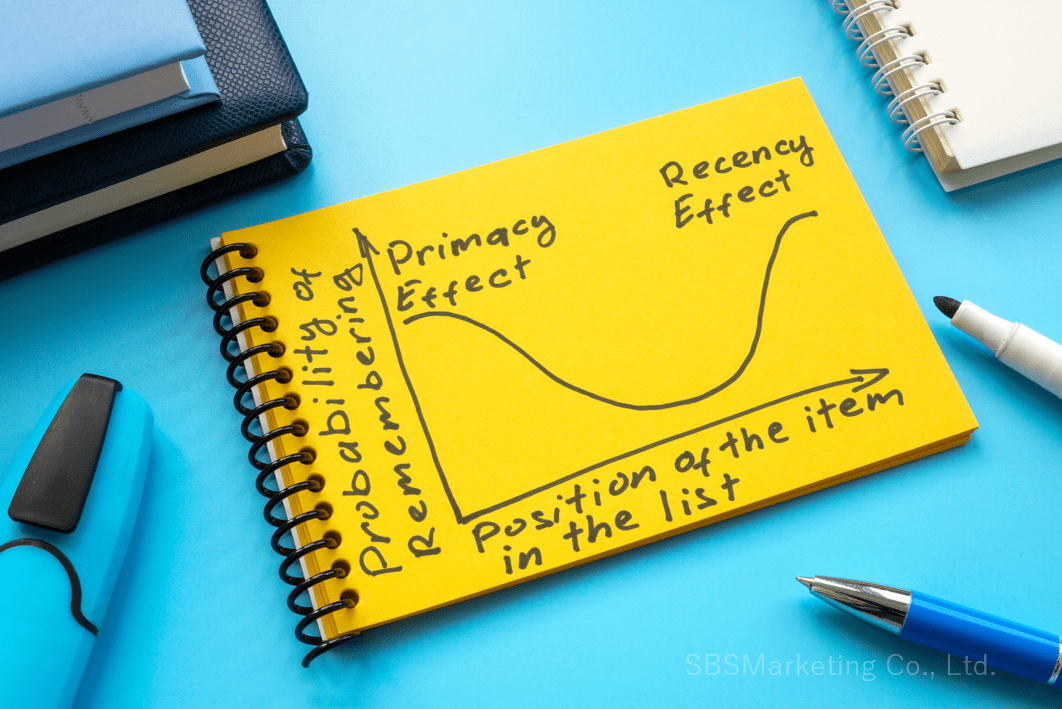 Primacy
Effect
Recency
Effect
Probability of
Remembering
Position of the item
in the list
SBSMarketing Co., Ltd.